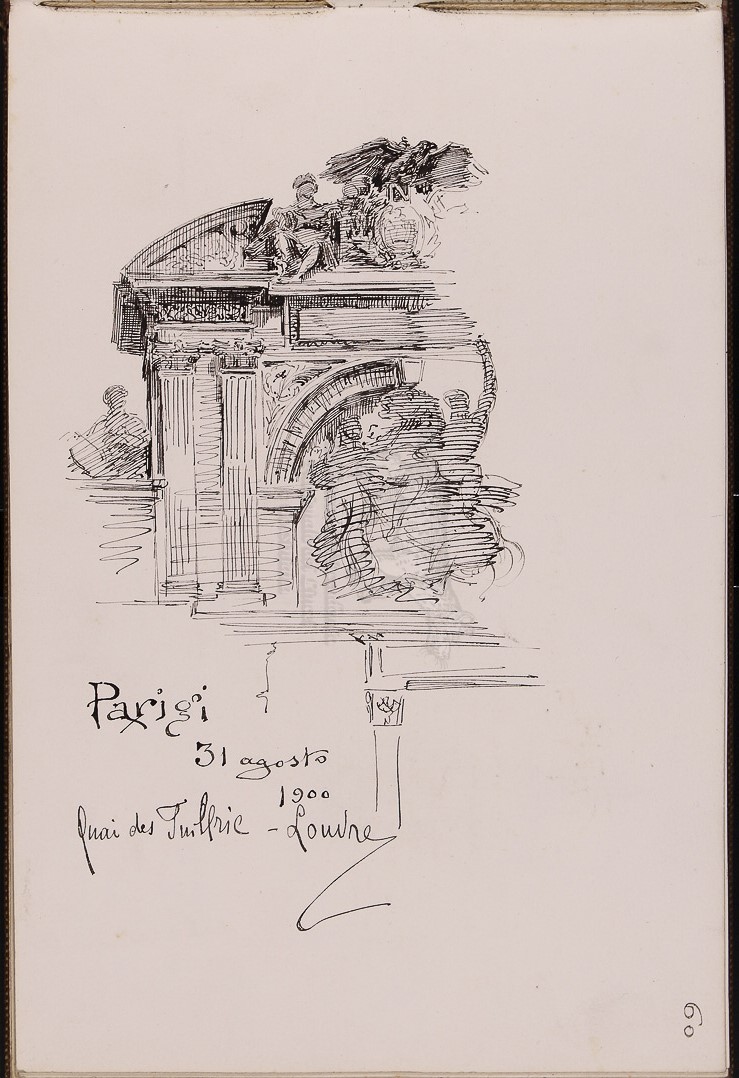 N
Parigi
31 agosto
1900
Quai des Tuillrie - Louvre
60